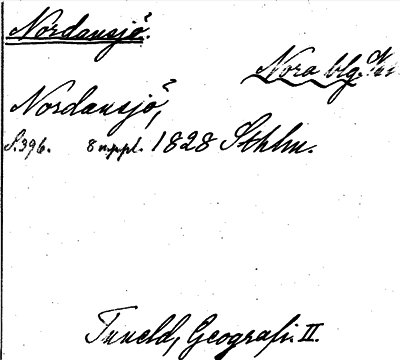 Nordansjö.
Nora blg.
Nordansjö,
S. 396. 8 uppl. 1828 Sthlm.
Tuneld, Geografi. II.